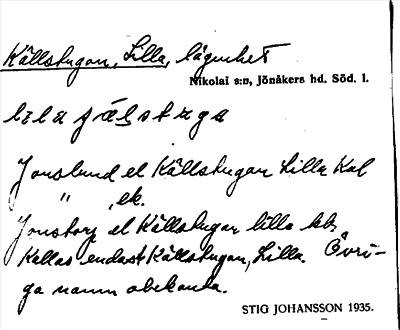 Källstugan, Lilla, lägenhet
Nikolai s:n, Jönåkers hd. Söd. l.
Jonslund el Källstugan Lilla Kal
" ek.
Jonstorp el Källstugar lilla kb,
Kallas endast Källstugan, Lilla. Övri-
ga namn obekanta.
STIG JOHANSSON 1935.